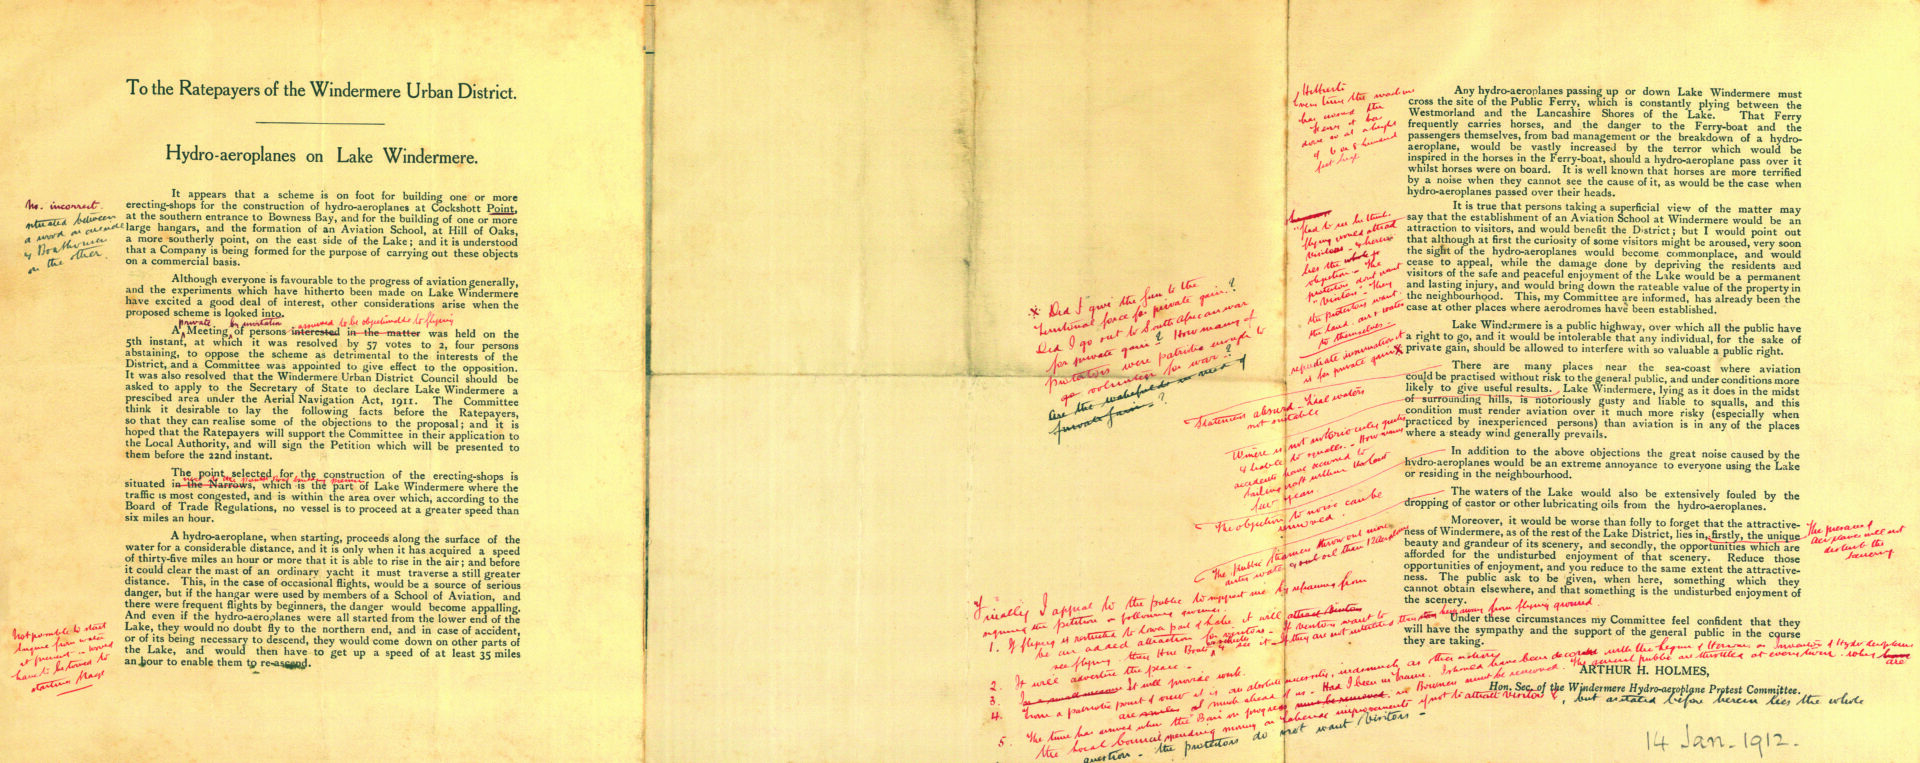 To the Ratepayers of the Windermere Urban District.
Hydro-aeroplanes on Lake Windermere.
It appears that a scheme is on foot for building one or more
erecting-shops for the construction of hydro-aeroplanes at Cockshott Point,
at the southern entrance to Bowness Bay, and for the building of one or more
large hangars, and the formation of an Aviation School, at Hill of Oaks,
a more southerly point, on the east side of the Lake; and it is understood
that a Company is being formed for the purpose of carrying out these objects
on a commercial basis.
No. incorrect.
situated between
a wood
& Boathouse
on the other.
Although everyone is favourable to the progress of aviation generally,
and the experiments which have hitherto been made on Lake Windermere
have excited a good deal of interest, other considerations arise when the
proposed scheme is looked into.
private by invitation assumed to be objectionable to flying
A Meeting of persons interested in the matter was held on the
5th instant, at which it was resolved by 57 votes to 2, four persons
abstaining, to oppose the scheme as detrimental to the interests of the
District, and a Committee was appointed to give effect to the opposition.
It was also resolved that the Windermere Urban District Council should be
asked to apply to the Secretary of State to declare Lake Windermere a
prescibed area under the Aerial Navigation Act, 1911. The Committee
think it desirable to lay the following facts before the Ratepayers,
so that they can realise some of the objections to the proposal; and it is
hoped that the Ratepayers will support the Committee in their application to
the Local Authority, and will sign the Petition which will be presented to
them before the 22nd instant.
The point selected for the construction of the erecting-shops is
situated in the Narrows, which is the part of Lake Windermere where the
traffic is most congested, and is within the area over which, according to the
Board of Trade Regulations, no vessel is to proceed at a greater speed than
six miles an hour.
A hydro-aeroplane, when starting, proceeds along the surface of the
water for a considerable distance, and it is only when it has acquired a speed
of thirty-five miles an hour or more that it is able to rise in the air; and before
it could clear the mast of an ordinary yacht it must traverse a still greater
distance. This, in the case of occasional flights, would be a source of serious
danger, but if the hangar were used by members of a School of Aviation, and
there were frequent flights by beginners, the danger would become appalling.
And even if the hydro-aeroplanes were all started from the lower end of the
Lake, they would no doubt fly to the northern end, and in case of accident,
or of its being necessary to descend, they would come down on other parts of
the Lake, and would then have to get up a speed of at least 35 miles
an hour to enable them to re-ascend.
Not possible to start
engine from water
at present - would
have to be towed to
starting stage
Did I give the gun to the
Territorial force for private gain?
Did I go out to South African war
for private gain? How many of
protestors were patriotic enough to
go volunteering for war?
Are the waterfalls in need of
private gain?
Hitherto
every time the machine
has crossed the
ferry it has
done so at a height
of 6 or 8 hundred
feet high
Any hydro-aeroplanes passing up or down Lake Windermere must
cross the site of the Public Ferry, which is constantly plying between the
Westmorland and the Lancashire Shores of the Lake. That Ferry
frequently carries horses, and the danger to the Ferry-boat and the
passengers themselves, from bad management or the breakdown of a hydro-
aeroplane, would be vastly increased by the terror which would be
inspired in the horses in the Ferry-boat, should a hydro-aeroplane pass over it
whilst horses were on board. It is well known that horses are more terrified
by a noise when they cannot see the cause of it, as would be the case when
hydro-aeroplanes passed over their heads.
flying would attract
visitors - wherein
lies the whole
objection - The
protestors dont want
"Visitors" - They
the protestors want
the land, air & water
to themselves.
repudiate insinuation it
is for private gain
It is true that persons taking a superficial view of the matter may
say that the establishment of an Aviation School at Windermere would be an
attraction to visitors, and would benefit the District; but I would point out
that although at first the curiosity of some visitors might be aroused, very soon
the sight of the hydro-aeroplanes would become commonplace, and would
cease to appeal, while the damage done by depriving the residents and
visitors of the safe and peaceful enjoyment of the Lake would be a permanent
and lasting injury, and would bring down the rateable value of the property in
the neighbourhood. This, my Committee are informed, has already been the
case at other places where aerodromes have been established.
Lake Windermere is a public highway, over which all the public have
a right to go, and it would be intolerable that any individual, for the sake of
private gain, should be allowed to interfere with so valuable a public right.
Statement absurd - Tidal waters
not suitable
There are many places near the sea-coast where aviation
could be practised without risk to the general public, and under conditions more
likely to give useful results. Lake Windermere, lying as it does in the midst
of surrounding hills, is notoriously gusty and liable to squalls, and this
condition must render aviation over it much more risky (especially when
practiced by inexperienced persons) than aviation is in any of the places
where a steady wind generally prevails.
W'mere is not notoriously gusty
& liable to squalls. - How many
accidents have occurred to
sailing craft within the last
few years.
In addition to the above objections the great noise caused by the
hydro-aeroplanes would be an extreme annoyance to everyone using the Lake
or residing in the neighbourhood.
The objection to noise can be
removed.
The waters of the Lake would also be extensively fouled by the
dropping of castor or other lubricating oils from the hydro-aeroplanes.
The public steamers throw out more
Moreover, it would be worse than folly to forget that the attractive-
ness of Windermere, as of the rest of the Lake District, lies in, firstly, the unique
beauty and grandeur of its scenery, and secondly, the opportunities which are
afforded for the undisturbed enjoyment of that scenery. Reduce those
opportunities of enjoyment, and you reduce to the same extent the attractive-
ness. The public ask to be given, when here, something which they
cannot obtain elsewhere, and that something is the undisturbed enjoyment of
the scenery.
The presence of
aeroplanes will not
disturb the
scenery
Under these circumstances my Committee feel confident that they
will have the sympathy and the support of the general public in the course
they are taking.
ARTHUR H. HOLMES,
Hon. Sec. of the Windermere Hydro-aeroplane Protest Committee.
Finally I appeal to the public to support me by refraining from
signing the petition on following grounds.
1. If flying is restricted to lower part of Lake, it will attract visitors
be an added attraction for visitors - If visitors want to
2. It will advertise the place.
3. It will provide work.
4. From a patriotic point of view it is an absolute necessity, inasmuch as other nations
are much ahead of us - Had I been in France, I should have been decorated with the Legion of Honour
5. The time has arrived when the
the Local Council spending money on
question - the protestors do not want Visitors -
but as stated before herein lies the whole
14 Jan. 1912.